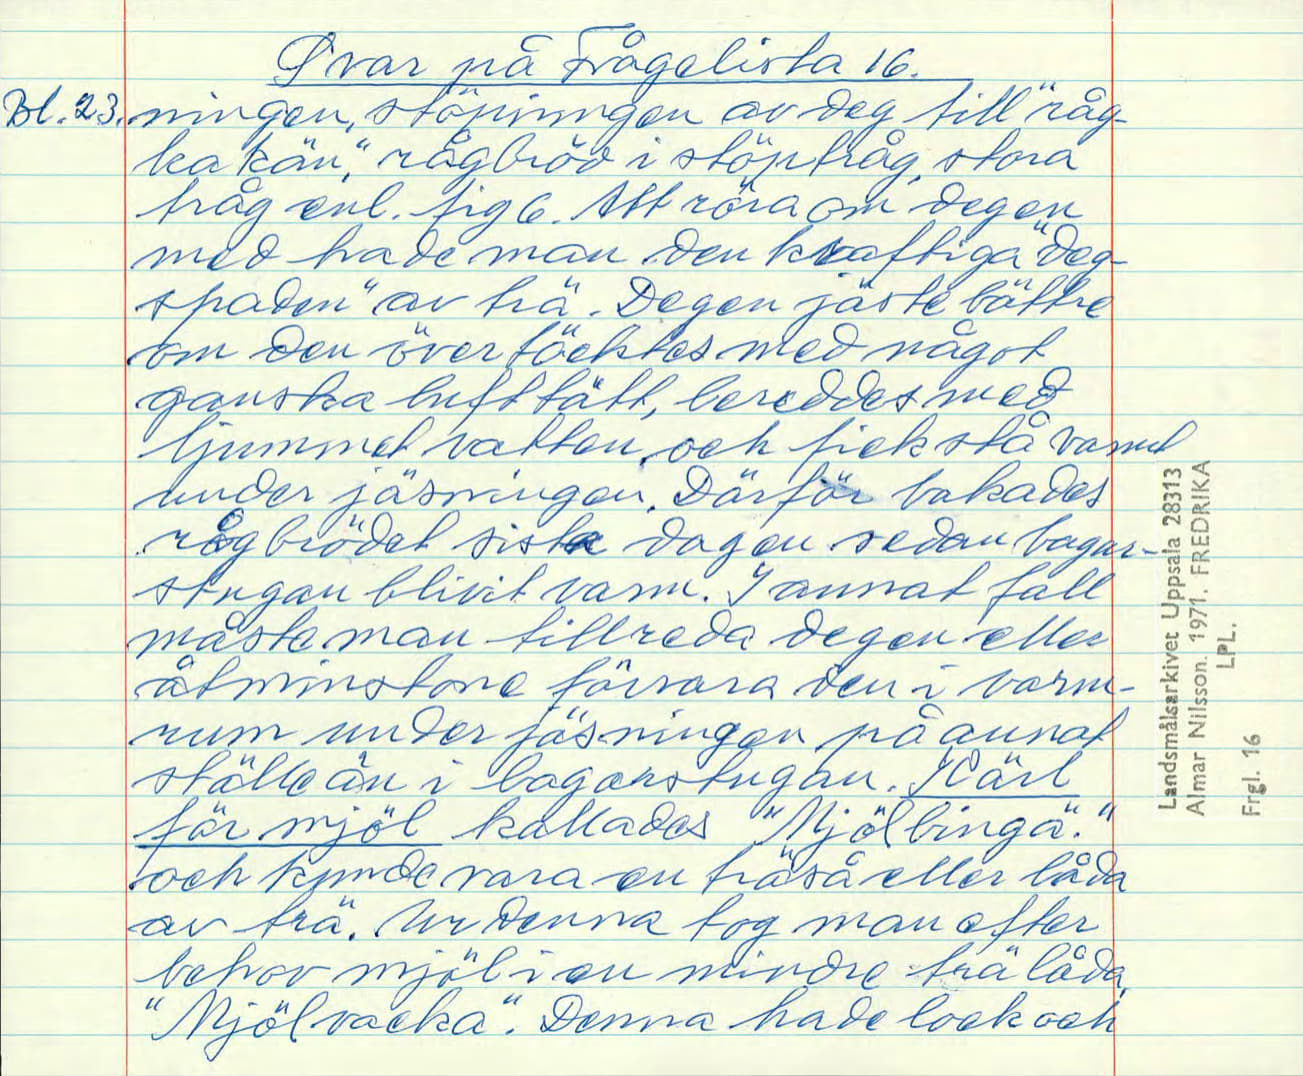 Svar på Frågelista 16.
Bl. 23. ningen, stöpningen av deg till "råg-
kakän," rågbröd i stöptråg, stora
tråg enl. fig 6. Att röra om degen
med hade man den kraftiga "deg-
spaden" av trä. Degen jäste bättre
om den övertäcktes med något
ganska lufttätt, bereddes med
ljummet vatten, och fick stå varmt
under jäsningen. Därför bakades
rågbrödet sista dagen sedan bagar-
stugan blivit varm. I annat fall
måste man tillreda degen eller
åtminstone förvara den i varm-
rum under jäsningen på annat
ställe än i bagarstugan. Kärl
för mjöl kallades "Mjölbinga".
och kunde vara en träså eller låda
av trä. Ur denna tog man efter
behov mjöl i en mindre trälåda,
"Mjölvacka". Denna hade lock och
Landsmålsarkivet Uppsala 28313
Almar Nilsson. 1971. FREDRIKA
LPL.
Frgl. 16